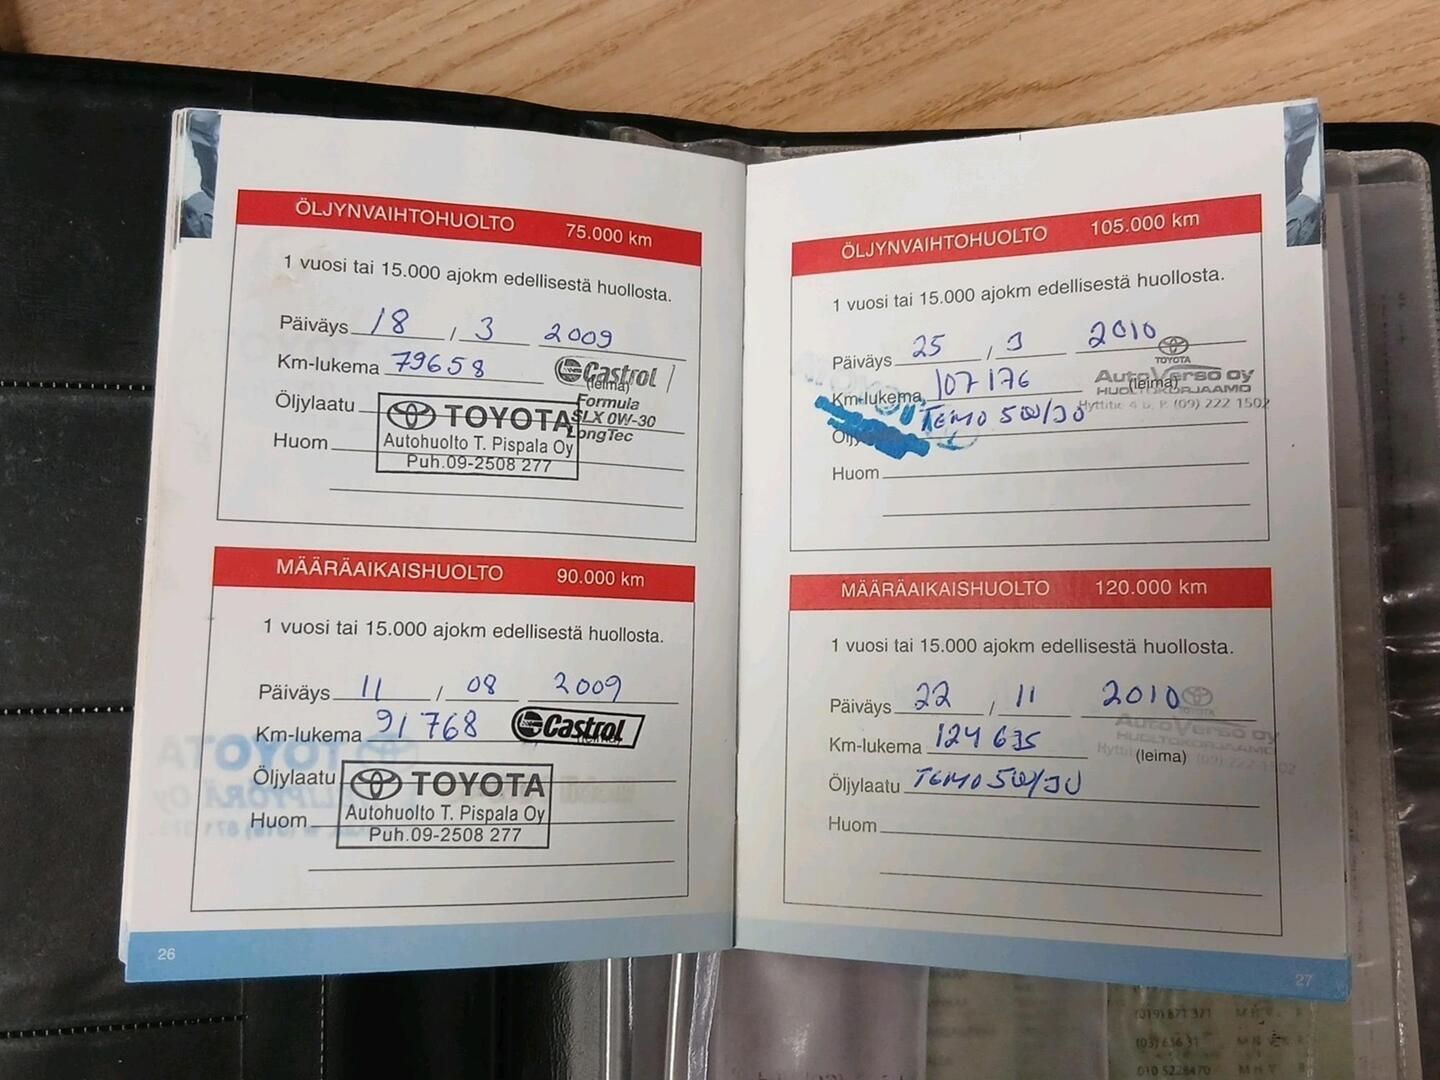 ÖLJYNVAIHTOHUOLTO 75.000 km
1 vuosi tai 15.000 ajokm edellisestä huollosta.
Päiväys 18 / 3 2009
Km-lukema 79658
Castrol
(leima)
Formula
SLX 0W-30
LongTec
Öljylaatu
TOYOTA
Autohuolto T. Pispala Oy
Puh.09-2508 277
Huom
MÄÄRÄAIKAISHUOLTO 90.000 km
1 vuosi tai 15.000 ajokm edellisestä huollosta.
Päiväys 11 / 08 2009
Km-lukema 91768
Castrol
Öljylaatu
TOYOTA
Autohuolto T. Pispala Oy
Puh.09-2508 277
Huom
26
ÖLJYNVAIHTOHUOLTO 105.000 km
1 vuosi tai 15.000 ajokm edellisestä huollosta.
Päiväys 25 / 3 2010
TOYOTA
AutoVerso oy
(leima)
HUOLTOKORJAAMO
Hyttitie 4 b, P. (09) 222 1502
Km-lukema 107176
TEMO 5W/30
Huom
MÄÄRÄAIKAISHUOLTO 120.000 km
1 vuosi tai 15.000 ajokm edellisestä huollosta.
Päiväys 22 / 11 2010
TOYOTA
AutoVerso oy
HUOLTOKORJAAMO
Km-lukema 124635
(leima)
(09) 222 1502
Öljylaatu TEMO 5W/30
Huom
27
(019) 871 371
(03) 656 31
010 5228470